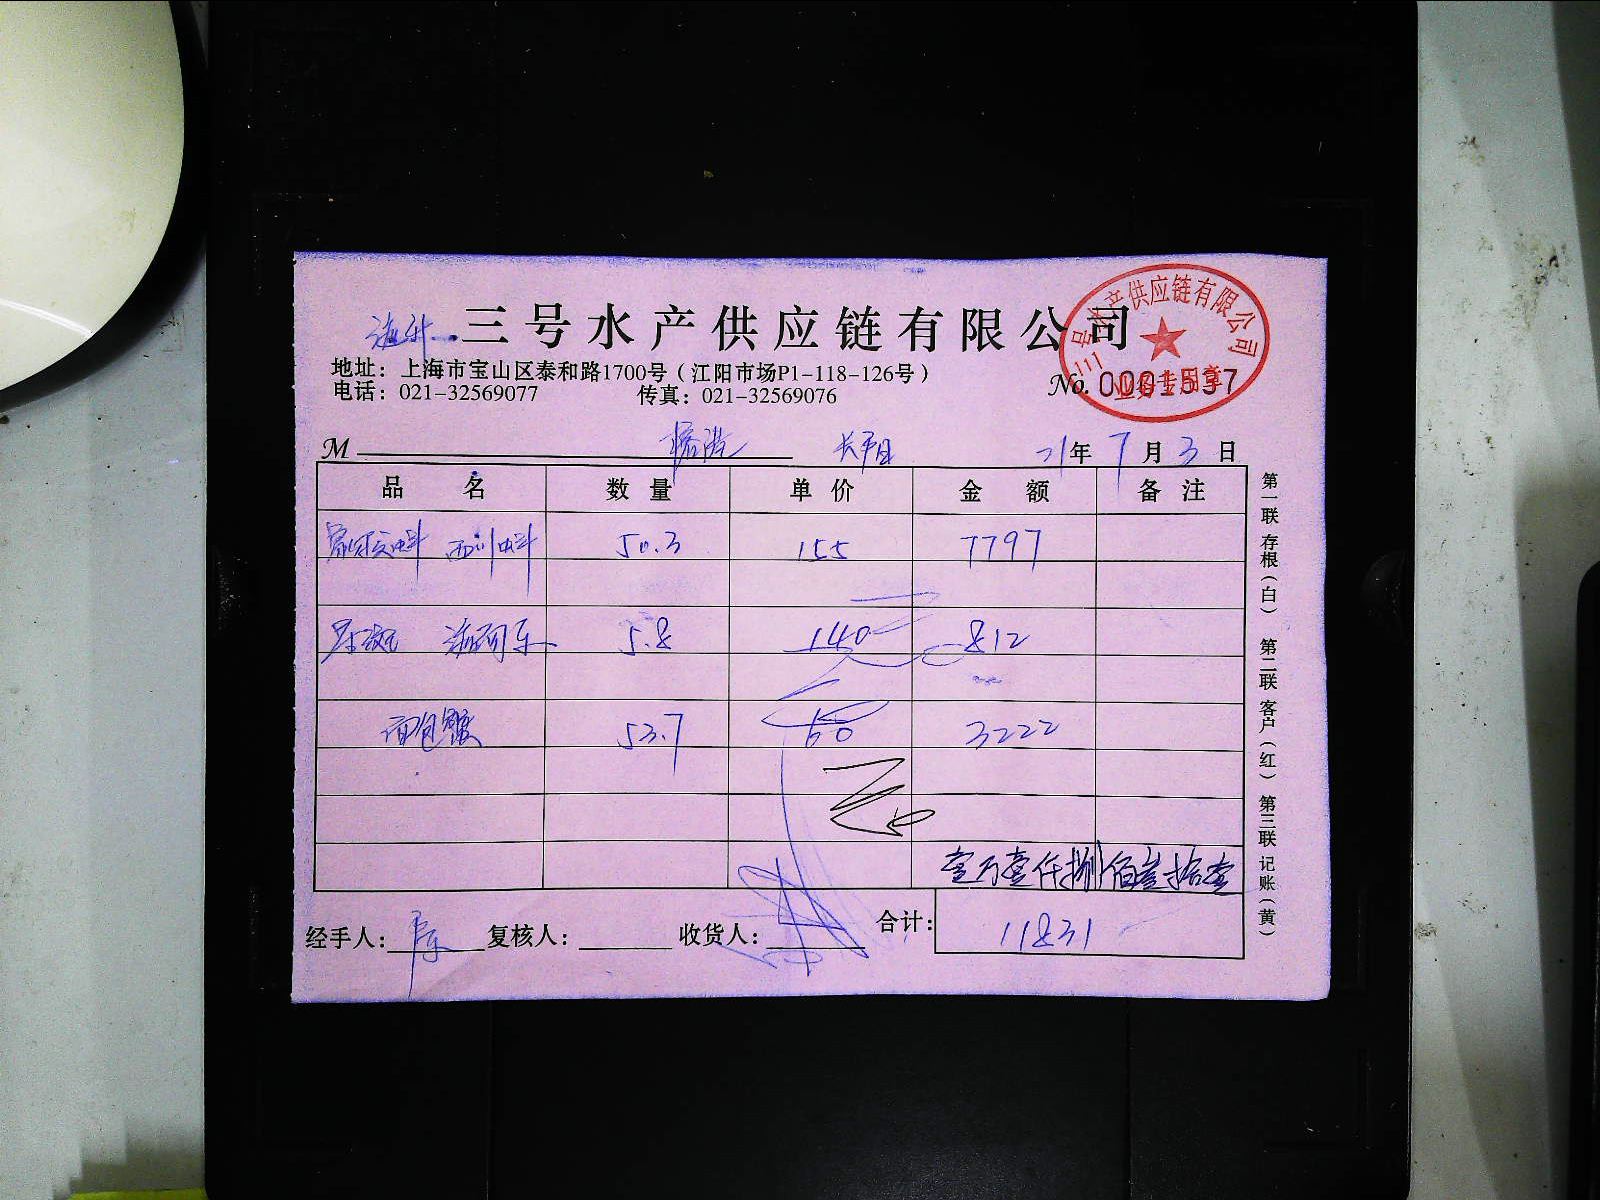 三号水产供应链有限公司
地址：上海市宝山区泰和路1700号（江阳市场P1-118-126号）
电话：021-32569077 传真：021-32569076
No. 0001537
号水产供应链有限公司
业务专用章
M 21年7月3日
品名 数量 单价 金额 备注
50.3 155 7797
5.8 140 812
面包蟹 53.7 60 3222
壹万壹仟捌佰叁拾壹
经手人： 复核人： 收货人： 合计：11831
第一联 存根（白） 第二联 客户（红） 第三联 记账（黄）